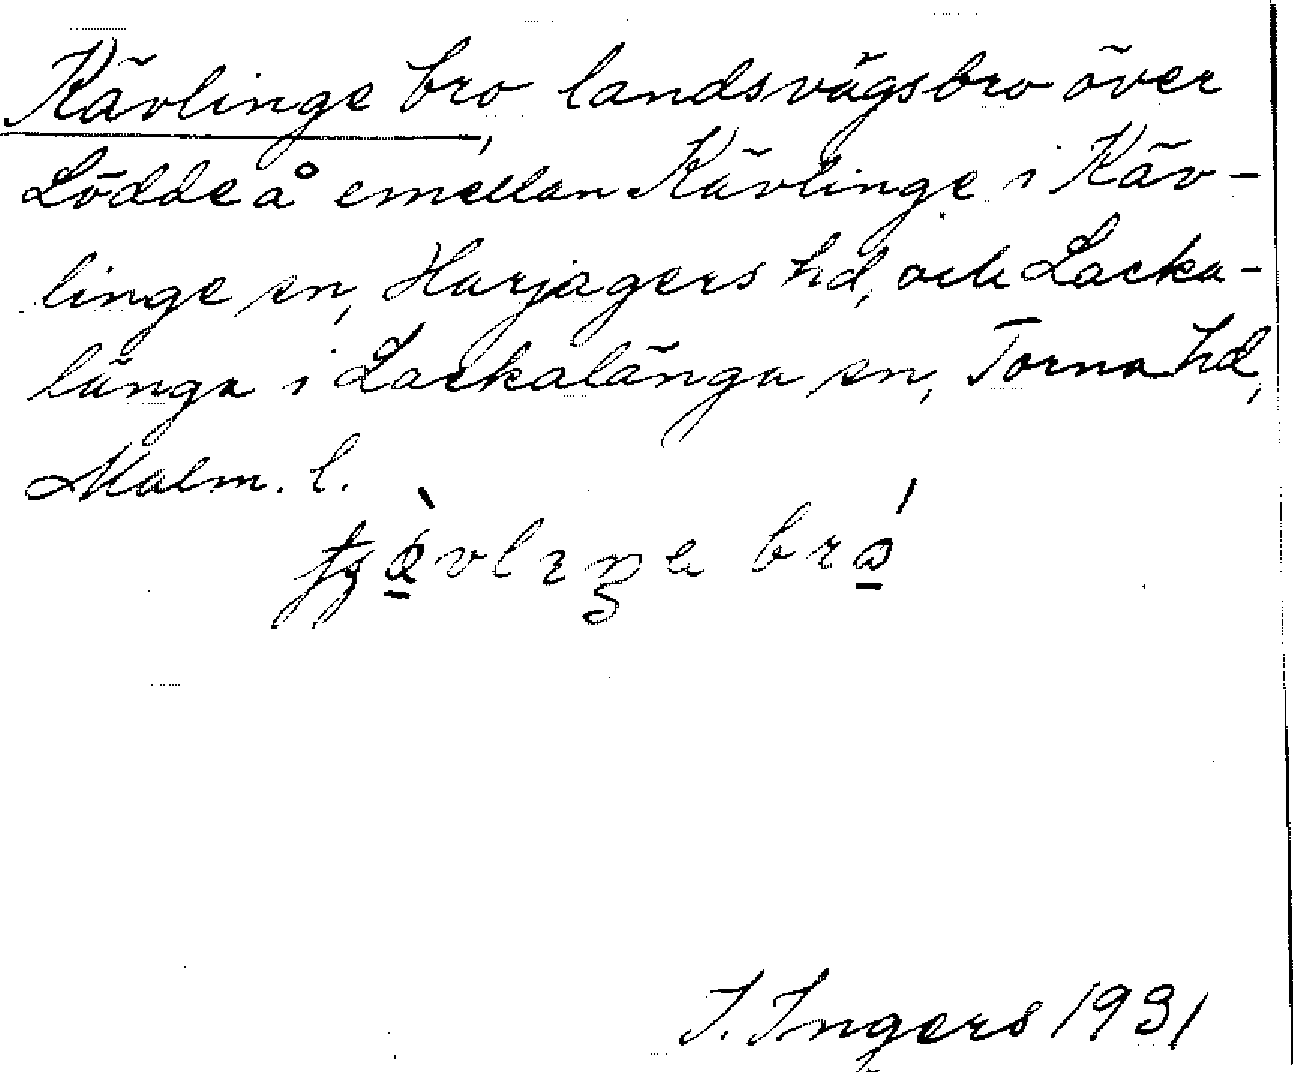 Kävlinge bro, landsvägsbro över
Lödde å emellan Kävlinge i Käv-
linge sn, Harjagers hd, och Lacka-
länga i Lackalänga sn, Torna hd,
Malm. l.
I. Ingers 1931